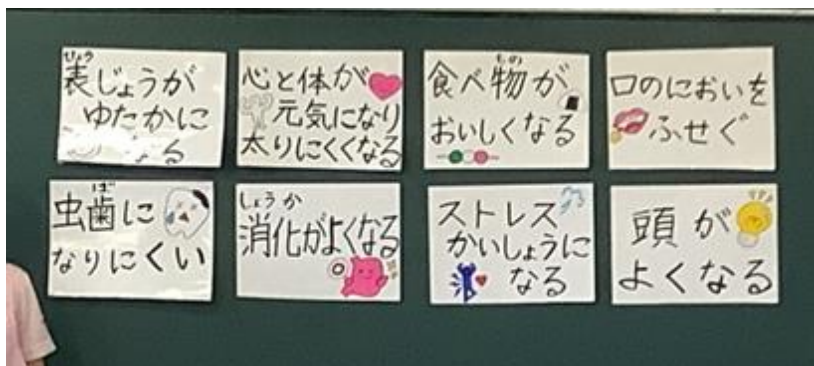 ひょう
表じょうが
ゆたかに
る
心と体が
元気になり
太りにくくなる
もの
食べ物が
おいしくなる
口のにおいを
ふせぐ
ば
虫歯に
なりにくい
しょうか
消化がよくなる
ストレス
かいしょうに
なる
頭が
よくなる